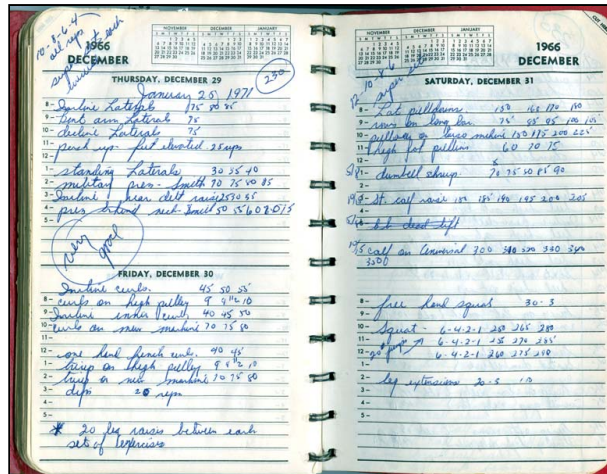 10-8-6-4
all reps
super sets each
1966
DECEMBER
NOVEMBER DECEMBER JANUARY
THURSDAY, DECEMBER 29
January 25, 1971
230
8- Incline Laterals 75 80 85
9- Bent arm Laterals 75
10- decline Laterals 75
11- push up - feet elevated 25 reps
12-
1- standing Laterals 30 35 40
2- military press - Smith 70 75 80 85
3- Incline rear delt raise 25 30 35
4- press behind neck Smith 50 55 60
5-
very good
FRIDAY, DECEMBER 30
Incline curls. 45 50 55
8- curls on high pulley 9 9 1/2 10
9- Incline inner curl, 40 45 50
10- curls on new machine 70 75 80
11-
12- one hand bench curl. 40 45
1- tricep on high pulley 9 9 1/2 10
2- tricep on new machine 70 75 80
3- dips 20 reps
4-
5-
* 20 leg raises between each
set of exercises
NOVEMBER DECEMBER JANUARY
1966
DECEMBER
12-10-8-6
super sets
SATURDAY, DECEMBER 31
8- Lat pulldowns 150 160 170 180
9- rows on long bar. 75 85 95 100 105
10- pulleys on large machine 150 175 200 225
11- high for pullins 60 70 75
12-
1- dumbell shrug 70 75 80 85 90
2-
3- St. calf raise 180 185 190 195 200 205
4- dead lift
5-
calf on Universal 300 310 320 330 340
350
8- free hand squat 30-3
9-
10- Squat - 6-4-2-1 250 265 280
11- 6-4-2-1 255 270 285
12- 6-4-2-1 260 275 290
1-
2- leg extensions 20-3
3-
4-
5-